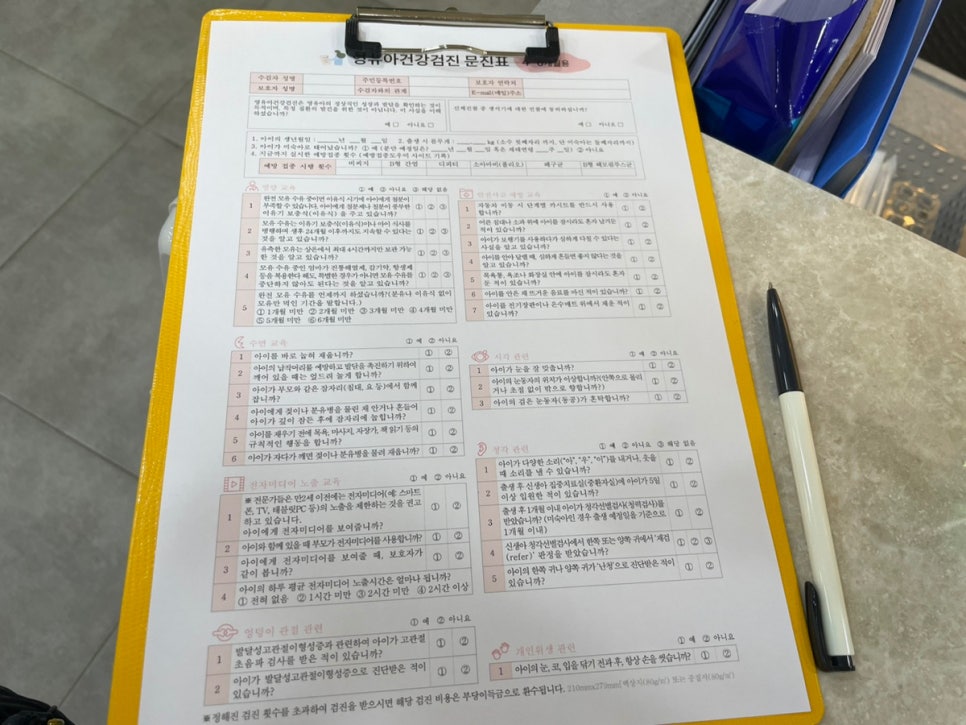 영유아건강검진 문진표
수검자 성명 주민등록번호 보호자 연락처
보호자 성명 수검자와의 관계 E-mail(메일)주소
영유아건강검진은 영유아의 정상적인 성장과 발달을 확인하는 것이
목적이며, 특정 질환의 발견을 위한 것이 아닙니다. 이 사실을 이해
하셨습니까?
예 □ 아니요 □
예 □ 아니요 □
1. 아이의 생년월일 : 년 월 일 2. 출생 시 몸무게 : kg (소수 첫째자리 까지, 단 미숙아는 둘째자리까지)
3. 아이가 미숙아로 태어났습니까? ① 예 (분만 예정일은? 년 월 일 혹은 재태연령 주 일) ② 아니요
4. 지금까지 실시한 예방접종 횟수 (예방접종도우미 사이트 기록)
예방 접종 시행 횟수 비씨지 B형 간염 디피티 소아마비(폴리오) 폐구균 B형 헤모필루스균
영양 교육 ① 예 ② 아니요 ③ 해당 없음
1 완전 모유 수유 중이면 이유식 시기에 아이에게 철분이
부족할 수 있습니다. 아이에게 철분제나 철분이 풍부한
이유기 보충식(이유식)을 주고 있습니까? ① ② ③
2 모유 수유는 이유기 보충식(이유식)이나 아이 식사를
병행하며 생후 24개월 이후까지도 지속할 수 있다는
것을 알고 있습니까? ① ② ③
3 유축한 모유는 상온에서 최대 4시간까지만 보관 가능
한 것을 알고 있습니까? ① ② ③
4 모유 수유 중인 엄마가 진통해열제, 감기약, 항생제
등을 복용한다 해도, 특별한 경우가 아니면 모유 수유를
중단하지 않아도 된다는 것을 알고 있습니까? ① ② ③
5 완전 모유 수유를 언제까지 하셨습니까?(분유나 이유식 없이
모유만 먹인 기간을 말합니다.)
① 1개월 미만 ② 2개월 미만 ③ 3개월 미만 ④ 4개월 미만
⑤ 5개월 미만 ⑥ 6개월 미만
안전사고 예방 교육 ① 예 ② 아니요
1 자동차 이동 시 단계별 카시트를 반드시 사용
합니까? ① ②
2 어른 침대나 소파 위에 아이를 잠시라도 혼자 남겨둔
적이 있습니까? ① ②
3 아이가 보행기를 사용하다가 심하게 다칠 수 있다는
사실을 알고 있습니까? ① ②
4 아이를 안아 달랠 때, 심하게 흔들면 좋지 않다는 것을
알고 있습니까? ① ②
5 목욕통, 욕조나 화장실 안에 아이를 잠시라도 혼자
둔 적이 있습니까? ① ②
6 아이를 안은 채 뜨거운 음료를 마신 적이 있습니까? ① ②
7 아이를 전기장판이나 온수매트 위에서 재운 적이
있습니까? ① ②
수면 교육 ① 예 ② 아니요
1 아이를 바로 눕혀 재웁니까? ① ②
2 아이의 납작머리를 예방하고 발달을 촉진하기 위하여
깨어 있을 때는 엎드려 놀게 합니까? ① ②
3 아이가 부모와 같은 잠자리(침대, 요 등)에서 함께
잡니까? ① ②
4 아이에게 젖이나 분유병을 물린 채 안거나 흔들어
아이가 깊이 잠든 후에 잠자리에 눕힙니까? ① ②
5 아이를 재우기 전에 목욕, 마사지, 자장가, 책 읽기 등의
규칙적인 행동을 합니까? ① ②
6 아이가 자다가 깨면 젖이나 분유병을 물려 재웁니까? ① ②
시각 관련 ① 예 ② 아니요
1 아이가 눈을 잘 맞춥니까? ① ②
2 아이의 눈동자의 위치가 이상합니까?(안쪽으로 몰리
거나 초점 없이 밖으로 향합니까?) ① ②
3 아이의 검은 눈동자(동공)가 혼탁합니까? ① ②
청각 관련 ① 예 ② 아니요 ③ 해당 없음
1 아이가 다양한 소리("아", "우", "이")를 내거나, 웃을
때 소리를 낼 수 있습니까? ① ②
2 출생 후 신생아 집중치료실(중환자실)에 아이가 5일
이상 입원한 적이 있습니까? ① ②
3 출생 후 1개월 이내 아이가 청각선별검사(청력검사)를
받았습니까? (미숙아인 경우 출생 예정일을 기준으로
1개월 이내) ① ②
4 신생아 청각선별검사에서 한쪽 또는 양쪽 귀에서 '재검
(refer)' 판정을 받았습니까? ① ② ③
5 아이의 한쪽 귀나 양쪽 귀가 '난청'으로 진단받은 적이
있습니까? ① ②
전자미디어 노출 교육 ① 예 ② 아니요
1 ※ 전문가들은 만2세 이전에는 전자미디어(예: 스마트
폰, TV, 태블릿PC 등)의 노출을 제한하는 것을 권고
하고 있습니다.
아이에게 전자미디어를 보여줍니까? ① ②
2 아이와 함께 있을 때 부모가 전자미디어를 사용합니까? ① ②
3 아이에게 전자미디어를 보여줄 때, 보호자가
같이 봅니까? ① ②
4 아이의 하루 평균 전자미디어 노출시간은 얼마나 됩니까?
① 전혀 없음 ② 1시간 미만 ③ 2시간 미만 ④ 2시간 이상
엉덩이 관절 관련 ① 예 ② 아니요
1 발달성고관절이형성증과 관련하여 아이가 고관절
초음파 검사를 받은 적이 있습니까? ① ②
2 아이가 발달성고관절이형성증으로 진단받은 적이
있습니까? ① ②
개인위생 관련 ① 예 ② 아니요
1 아이의 눈, 코, 입을 닦기 전과 후, 항상 손을 씻습니까? ① ②
※ 정해진 검진 횟수를 초과하여 검진을 받으시면 해당 검진 비용은 부당이득금으로 환수됩니다. 210mm×279mm[백상지(80g/㎡) 또는 중질지(80g/㎡)]